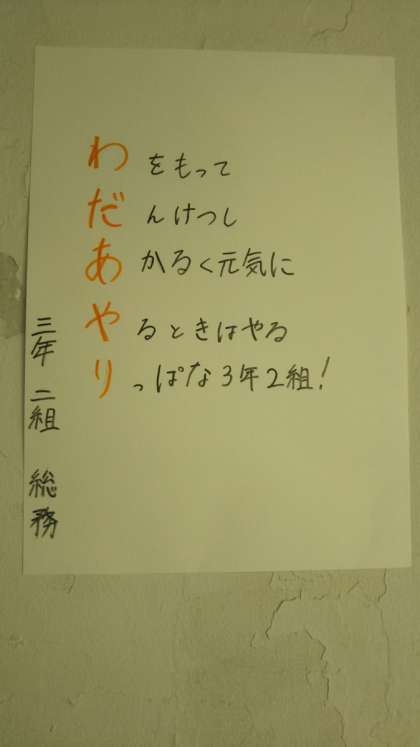 わをもって
だんけつし
あかるく元気に
やるときはやる
りっぱな3年2組!
三年二組 総務